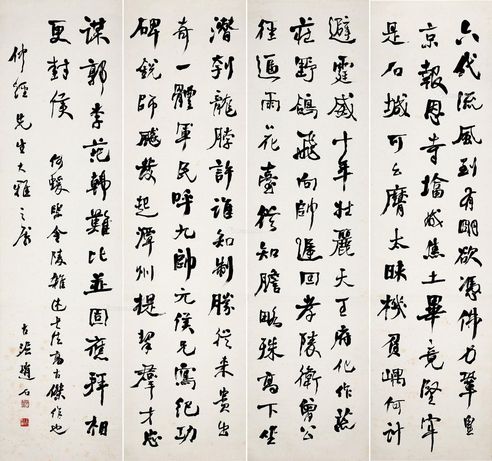 六代流風到有明欲憑佛力鞏皇
京報恩寺塔成焦土畢竟堅牢
是石城可么麼太昧機負嵎何計
避霆威十年壯麗天王府化作荒
莊野鴿飛向帥遲回孝陵衛曾公
徑逼雨花臺從知膽略殊高下坐
潛刳龍脖許誰知制勝從來貴出
奇一體軍民呼九帥元侯兄寫紀功
碑銳師飈發起潭州提挈群才忠
謀郭李范韓難比並固應拜相
更封侯 何蝯叟金陵雜述七絕高古傑作也
仲經先生大雅之屬 趙石